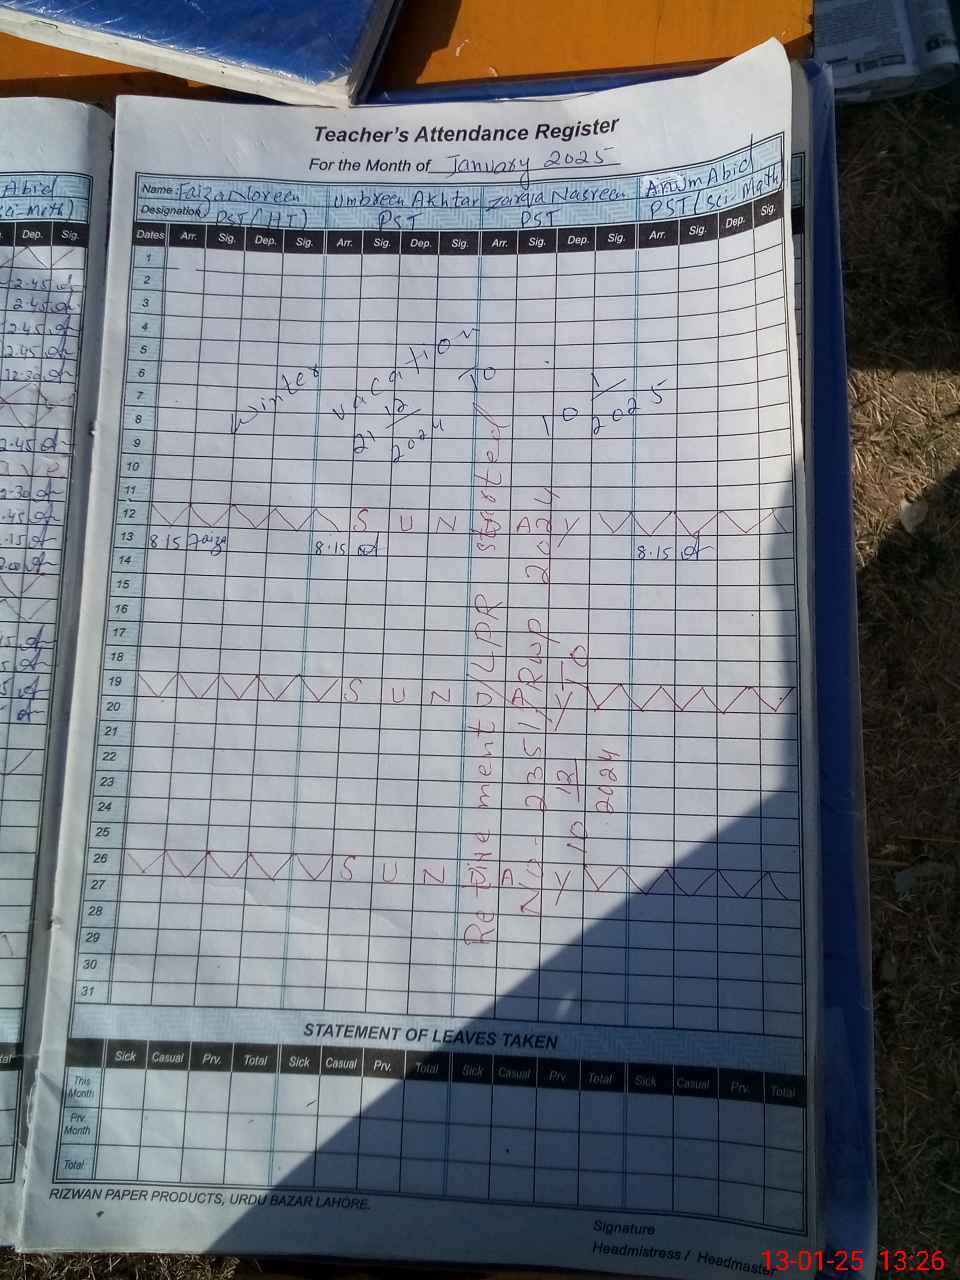 Teacher's Attendance Register
For the Month of January 2025
Name: Faiza Noreen Umbreen Akhtar Zargia Nasreen Arum Abid
Designation PST (HT) PST PST PST (Sci-Math)
Dates Arr. Sig. Dep. Sig. Arr. Sig. Dep. Sig. Arr. Sig. Dep. Sig. Arr. Sig. Dep. Sig.
1
2
3
4
5
6
7
8
9
10
11
12 SUNDAY
13 8 15 Faiza 8.15 8.15
14
15
16
17
18
19 SUNDAY
20
21
22
23
24
25
26 SUNDAY
27
28
29
30
31
Winter vacation
21 12/2024 To 10 1/2025
Retirement o/LPR started
No - 2351/PRWP 2024
10 12/2024
STATEMENT OF LEAVES TAKEN
Sick Casual Prv. Total Sick Casual Prv. Total Sick Casual Prv. Total Sick Casual Prv. Total
This Month
Prv. Month
Total
RIZWAN PAPER PRODUCTS, URDU BAZAR LAHORE.
Signature
Headmistress / Headmaster
Abid
Sci-Math)
Dep. Sig.
2.45
2.45
2.45
2.45
12.30
2.45
13-01-25 13:26